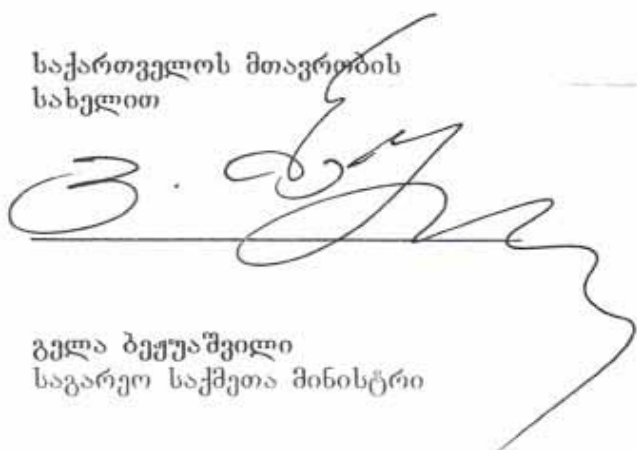 საქართველოს მთავრობის
სახელით
გელა ბეჟუაშვილი
საგარეო საქმეთა მინისტრი